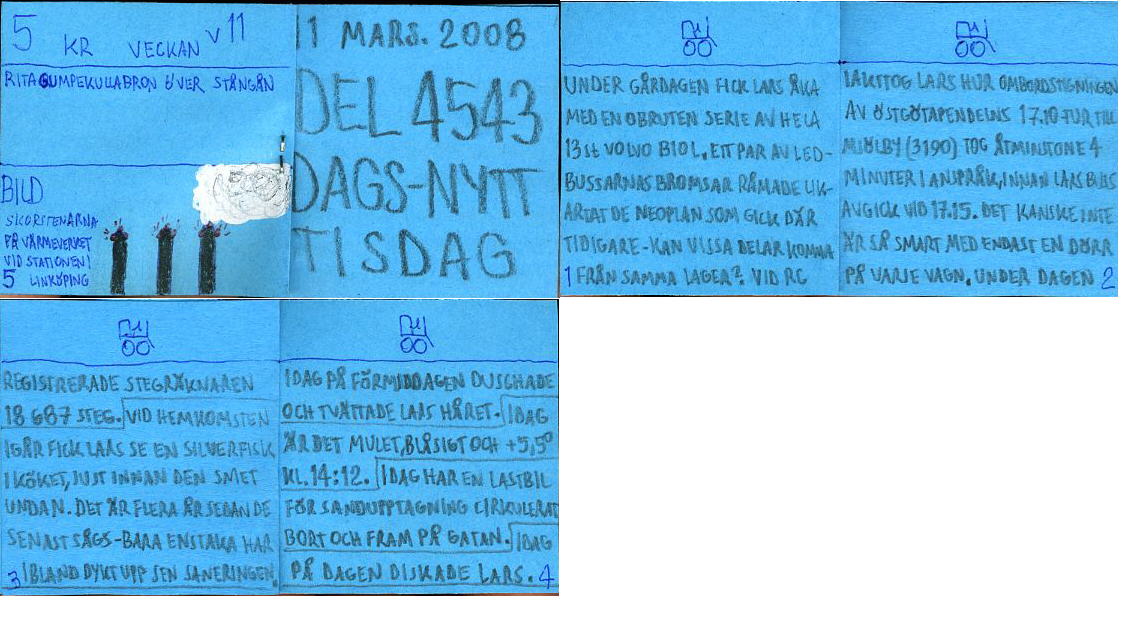 5 KR VECKAN V 11
RITA GUMPEKULLABRON ÖVER STÅNGÅN
BILD
SKORSTENARNA
PÅ VÄRMEVERKET
VID STATIONEN I
5 LINKÖPING
11 MARS. 2008
DEL 4543
DAGS-NYTT
TISDAG
UNDER GÅRDAGEN FICK LARS ÅKA
MED EN OBRUTEN SERIE AV HELA
13 st VOLVO B10L, ETT PAR AV LED-
BUSSARNAS BROMSAR RÅMADE LIK-
ARTAT DE NEOPLAN SOM GICK DÄR
TIDIGARE-KAN VISSA DELAR KOMMA
1 FRÅN SAMMA LAGER? VID RC
IAKTTOG LARS HUR OMBORDSTIGNINGEN
AV ÖSTGÖTAPENDELNS 17.10 TUR TILL
MJÖLBY (3190) TOG ÅTMINSTONE 4
MINUTER I ANSPRÅK, INNAN LARS BUSS
AVGICK VID 17.15. DET KANSKE INTE
ÄR SÅ SMART MED ENDAST EN DÖRR
PÅ VARJE VAGN. UNDER DAGEN 2
REGISTRERADE STEGRÄKNAREN
18 687 STEG. VID HEMKOMSTEN
IGÅR FICK LARS SE EN SILVERFISK
I KÖKET, JUST INNAN DEN SMET
UNDAN. DET ÄR FLERA ÅR SEDAN DE
SENAST SÅGS-BARA ENSTAKA HAR
3 IBLAND DYKT UPP SEN SANERINGEN.
IDAG PÅ FÖRMIDDAGEN DUSCHADE
OCH TVÄTTADE LARS HÅRET. IDAG
ÄR DET MULET, BLÅSIGT OCH +5,5°
KL. 14:12. IDAG HAR EN LASTBIL
FÖR SANDUPPTAGNING CIRKULERAT
BORT OCH FRAM PÅ GATAN. IDAG
PÅ DAGEN DISKADE LARS. 4